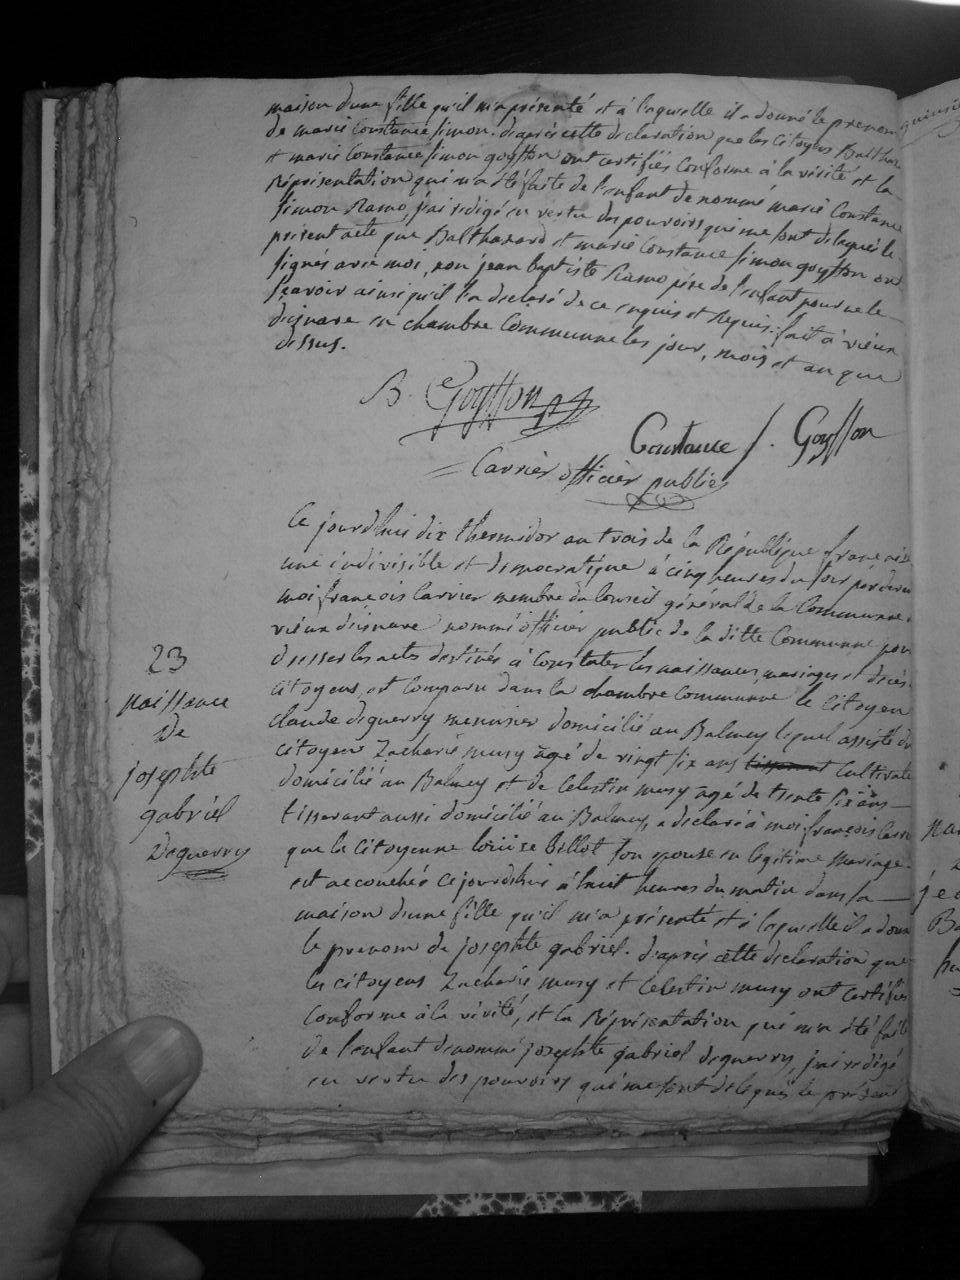 maison d'une fille qu'il m'a présenté et à laquelle il a donné le prenom
de marie Constance simon. d'après cette déclaration que les Citoyens Balthazar
et marie Constance simon goyffon ont certifiés Conforme à la vérité et la
Réprésentation qui m'a été faite de l'enfant denommé marie Constance
simon Ramo, j'ai rédigé en vertu des pouvoirs qui me sont délégués le
présent acte que Balthazard et marie Constance simon goyffon ont
signés avec moi, non jean baptiste Ramo père de l'enfant pour ne le
sçavoir ainsi qu'il l'a déclaré de ce enquis et Requis. fait à vieux
d'izenave en chambre Commune les jour, mois et an que
dessus.
B. Goyffon
Constance S. Goyffon
Carrier officier public
Ce jourdhui dix thermidor an trois de la République française
une indivisible et démocratique à cinq heures du soir pardevant
moi françois Carrier membre du Conseil général de la Commune de
vieux dizenave nommé officier public de la ditte Commune pour
dresser les actes destinés à Constater les naissances, mariages et décès des
Citoyens, est Comparu dans la chambre Commune le Citoyen
claude deguerry menusier domicilié au Balmey lequel assisté du
citoyen Zacharie musy âgé de vingt six ans tisserant Cultivateur
domicilié au Balmey et de Celestin musy âgé de trente six ans
tisserant aussi domicilié au Balmey, a déclaré à moi françois Carrier
que la citoyenne louise billot son épouse en légitime mariage
est accouchée ce jourdhui à huit heures du matin dans sa
maison d'une fille qu'il m'a présenté et à laquelle il a donné
le prenom de josephte gabriel. d'après cette déclaration que
les citoyens Zacharie musy et Celestin musy ont certifiés
Conforme à la vérité, et la Réprésentation qui m'a été faite
de l'enfant dénommé josephte gabriel deguerry, j'ai rédigé
en vertu des pouvoirs qui me sont délégués le présent
23
naissance
De
josephte
gabriel
Deguerry